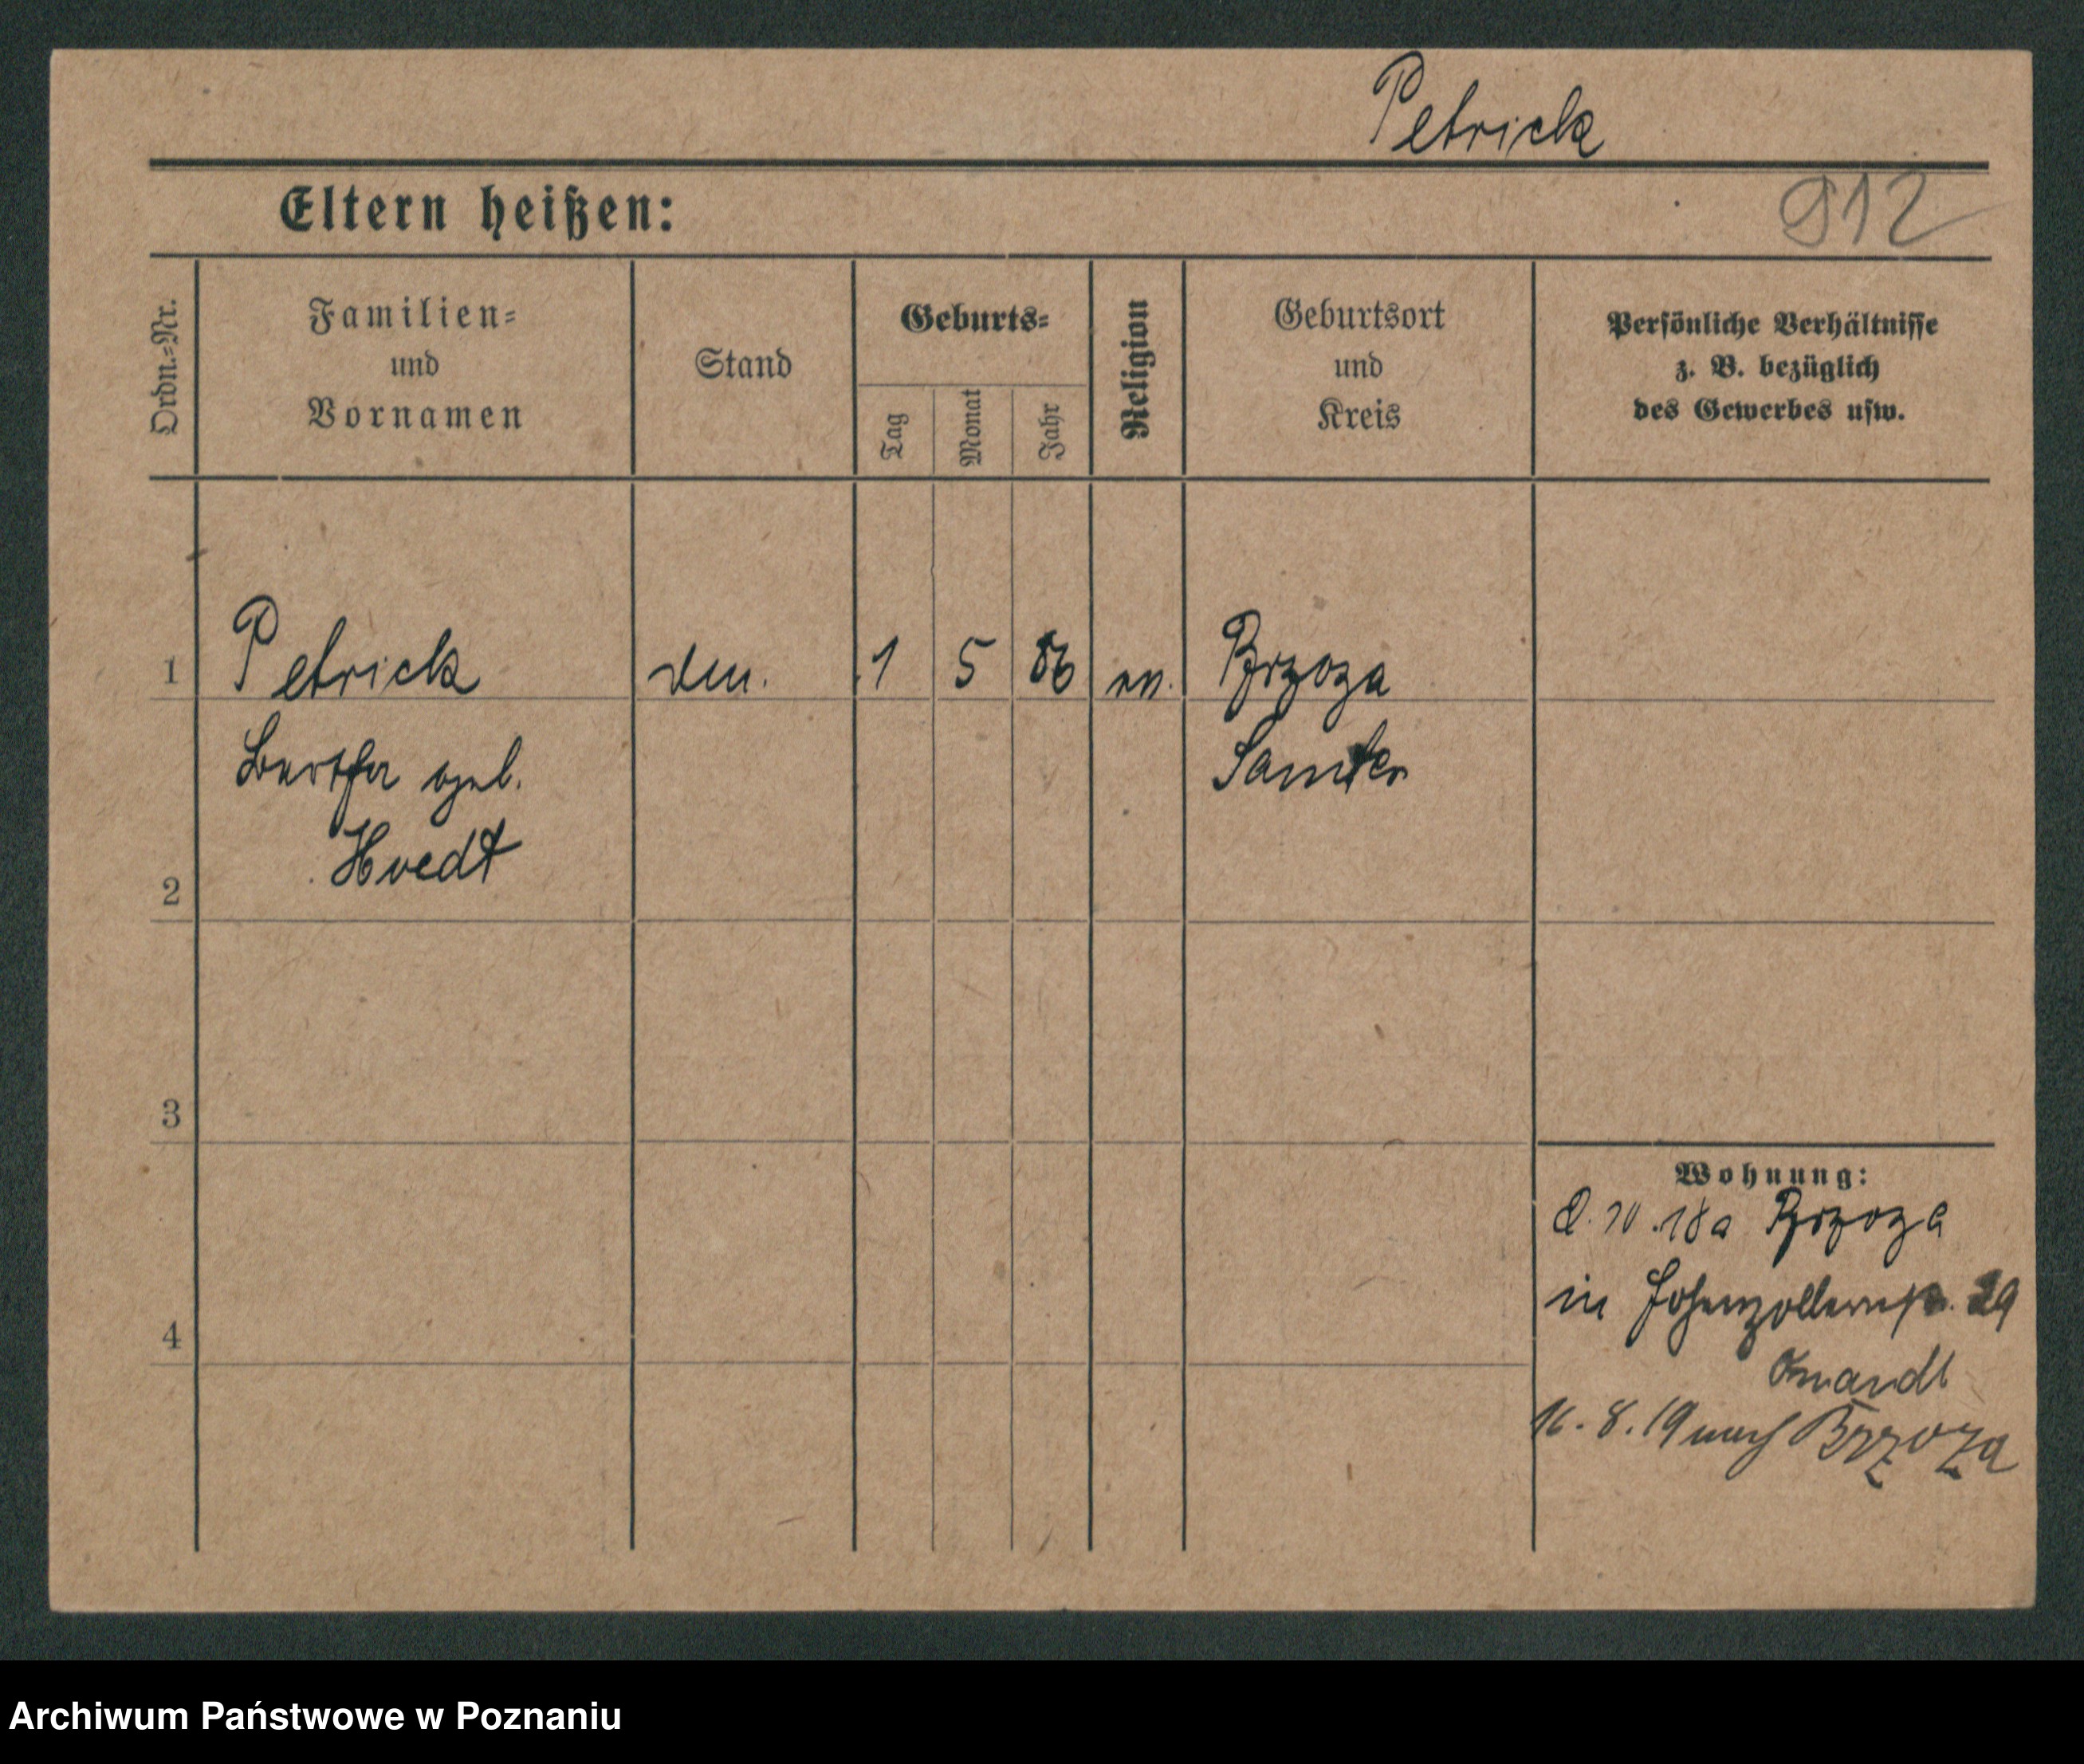 Petrick
912
Eltern heißen:
Ordn.=Nr.
Familien=
und
Vornamen
Stand
Geburts=
Tag
Monat
Jahr
Religion
Geburtsort
und
Kreis
Persönliche Verhältnisse
z. B. bezüglich
des Gewerbes usw.
1
Petrick
1 5 86
Brzoza
Bertha geb.
Samter
2
3
4
Wohnung:
18 a Brzoza
in Hohenzollernstr. 29
16. 8. 19 nach Brzoza
Archiwum Państwowe w Poznaniu